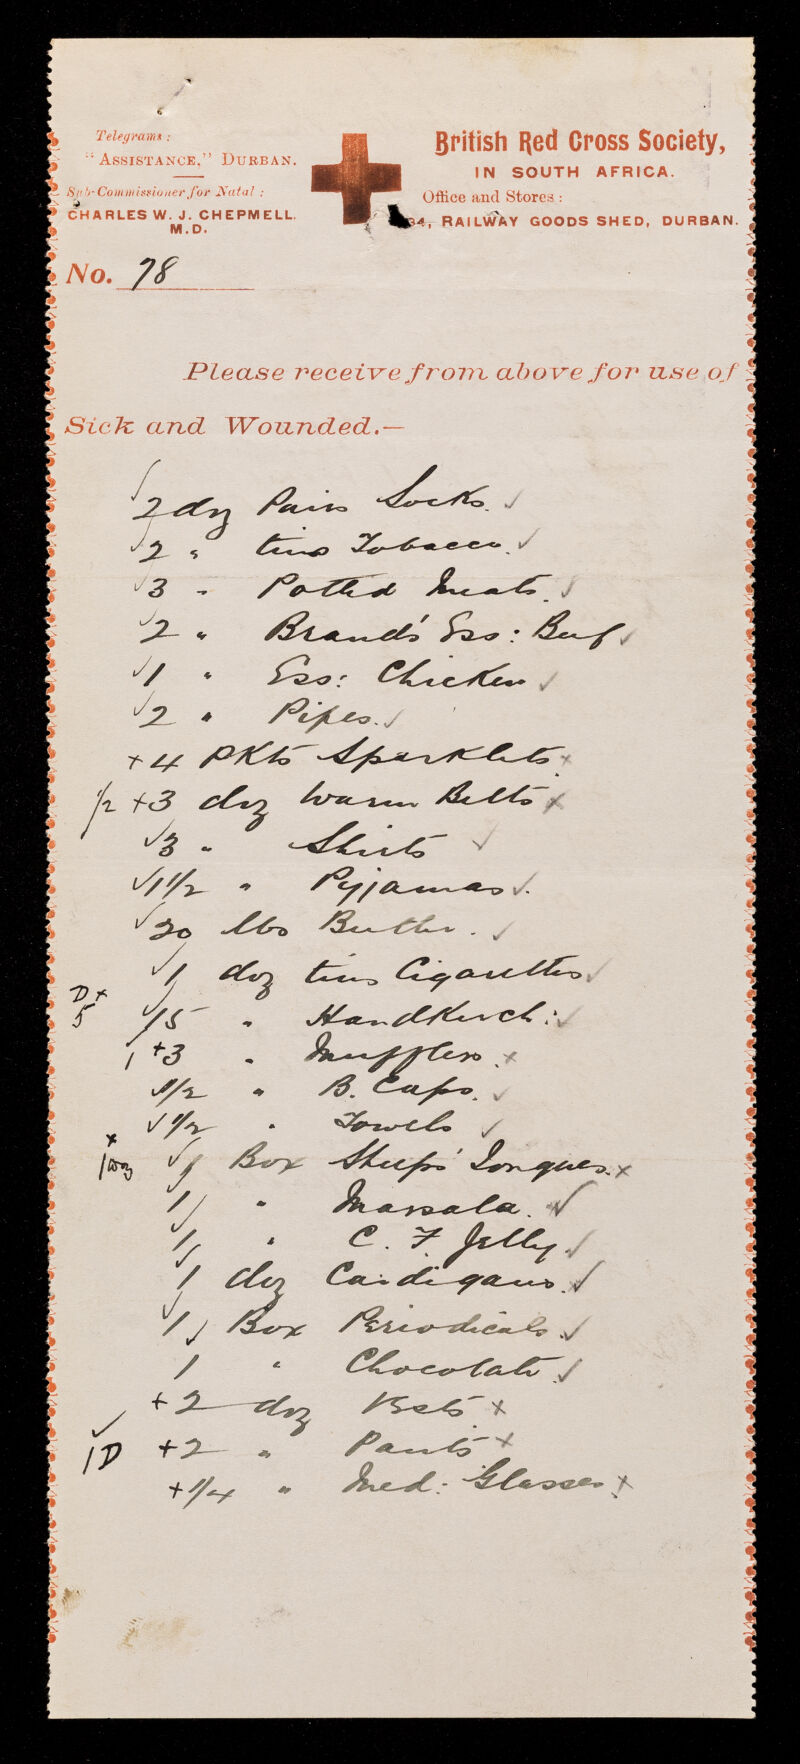 Telegrams:
"ASSISTANCE," DURBAN.
Sub-Commissioner for Natal:
CHARLES W. J. CHEPMELL.
M.D.
British Red Cross Society,
IN SOUTH AFRICA.
Office and Stores:
34, RAILWAY GOODS SHED, DURBAN.
No. 78
Please receive from above for use of
Sick and Wounded.—
✓ 2 doz Pairs Socks. ✓
✓ 2 " tins Tobacco. ✓
✓ 3 " Potted Meats. ✓
✓ 2 " Brand's Ess: Beef ✓
✓ 1 " Ess: Chicken ✓
✓ 2 " Pipes. ✓
+ 4 PKts Sparklets. x
1/2 + 3 doz Warm Belts x
✓ 3 " Shirts ✓
✓ 1 1/2 " Pyjamas ✓.
✓ 20 lbs Butter. ✓
✓ 1 doz tins Cigarettes ✓
D x 5 ✓ 15 " HandKerch: ✓
1 + 3 " Mufflers. x
✓ 1/2 " B. Caps. ✓
✓ 1 1/2 " Towels ✓
x 1 doz ✓ 1 Box Sheeps' Tongues. x
✓ 1 " Marsala. ✓
✓ 1 " C. F. Jelly ✓
✓ 1 doz Cardigans. ✓
✓ 1 Box Periodicals. ✓
✓ 1 " Chocolate. ✓
+ 2 doz Vests x
✓ 1D + 2 " Pants x
+ 1/4 " Med: Glasses. x